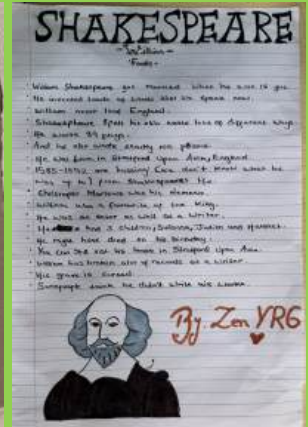 SHAKESPEARE
- William -
- Facts -
William Shakespeare got married when he was 18 yrs.
He invented loads of words that we speak now.
William never left England.
Shakespeare spelt his own name lots of different ways
He wrote 39 plays.
And he also wrote
He was born in Stratford Upon Avon, England
1585-1592 are missing (we don't know what he was up to) from Shakespeares life
Christopher Marlowe was his
William was a favourite of the King.
He was an actor as well as a writer.
He had 3 children, Susanna, Judith and Hamnet.
He might have died on his birthday.
You can still visit his house in Stratford Upon Avon.
William has broken alot of records as a writer
His grave is cursed.
Some people think he didn't write his work.
By. Zen YR6